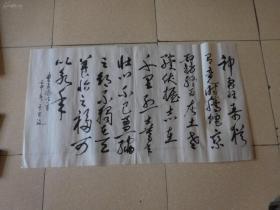 神龜雖壽猶
有竟時騰蛇乘
霧終為土灰老
驥伏櫪志在
千里烈士暮年
壯心不已盈縮
之期不獨在天
養怡之福可
以永年